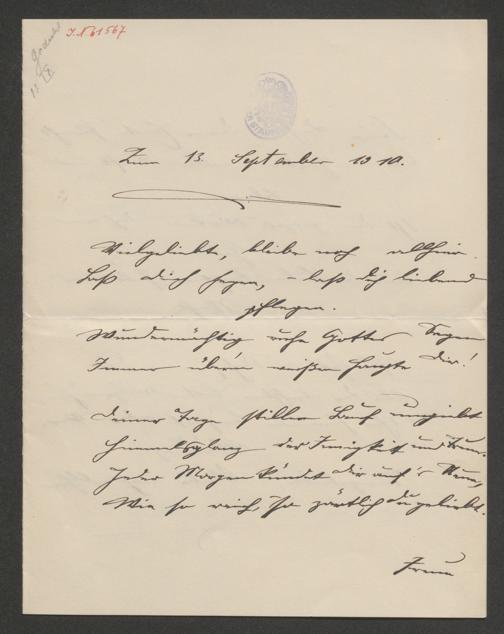 J.N 61567
Zum 13. September 1910.
Vielgeliebte, bleibe noch allhier.
Laß dich hegen, – laß dich liebend
pflegen.
Wundermächtig ruhe Gottes Segen
Immer über'm weißen Haupte dir!
Deiner Tage stillen Lauf umgiebt
Himmelsglanz der Innigkeit und Treue.
Jeder Morgen kündet dir auf's Neue,
Wie so reich, so zärtlich du geliebt.
Irene